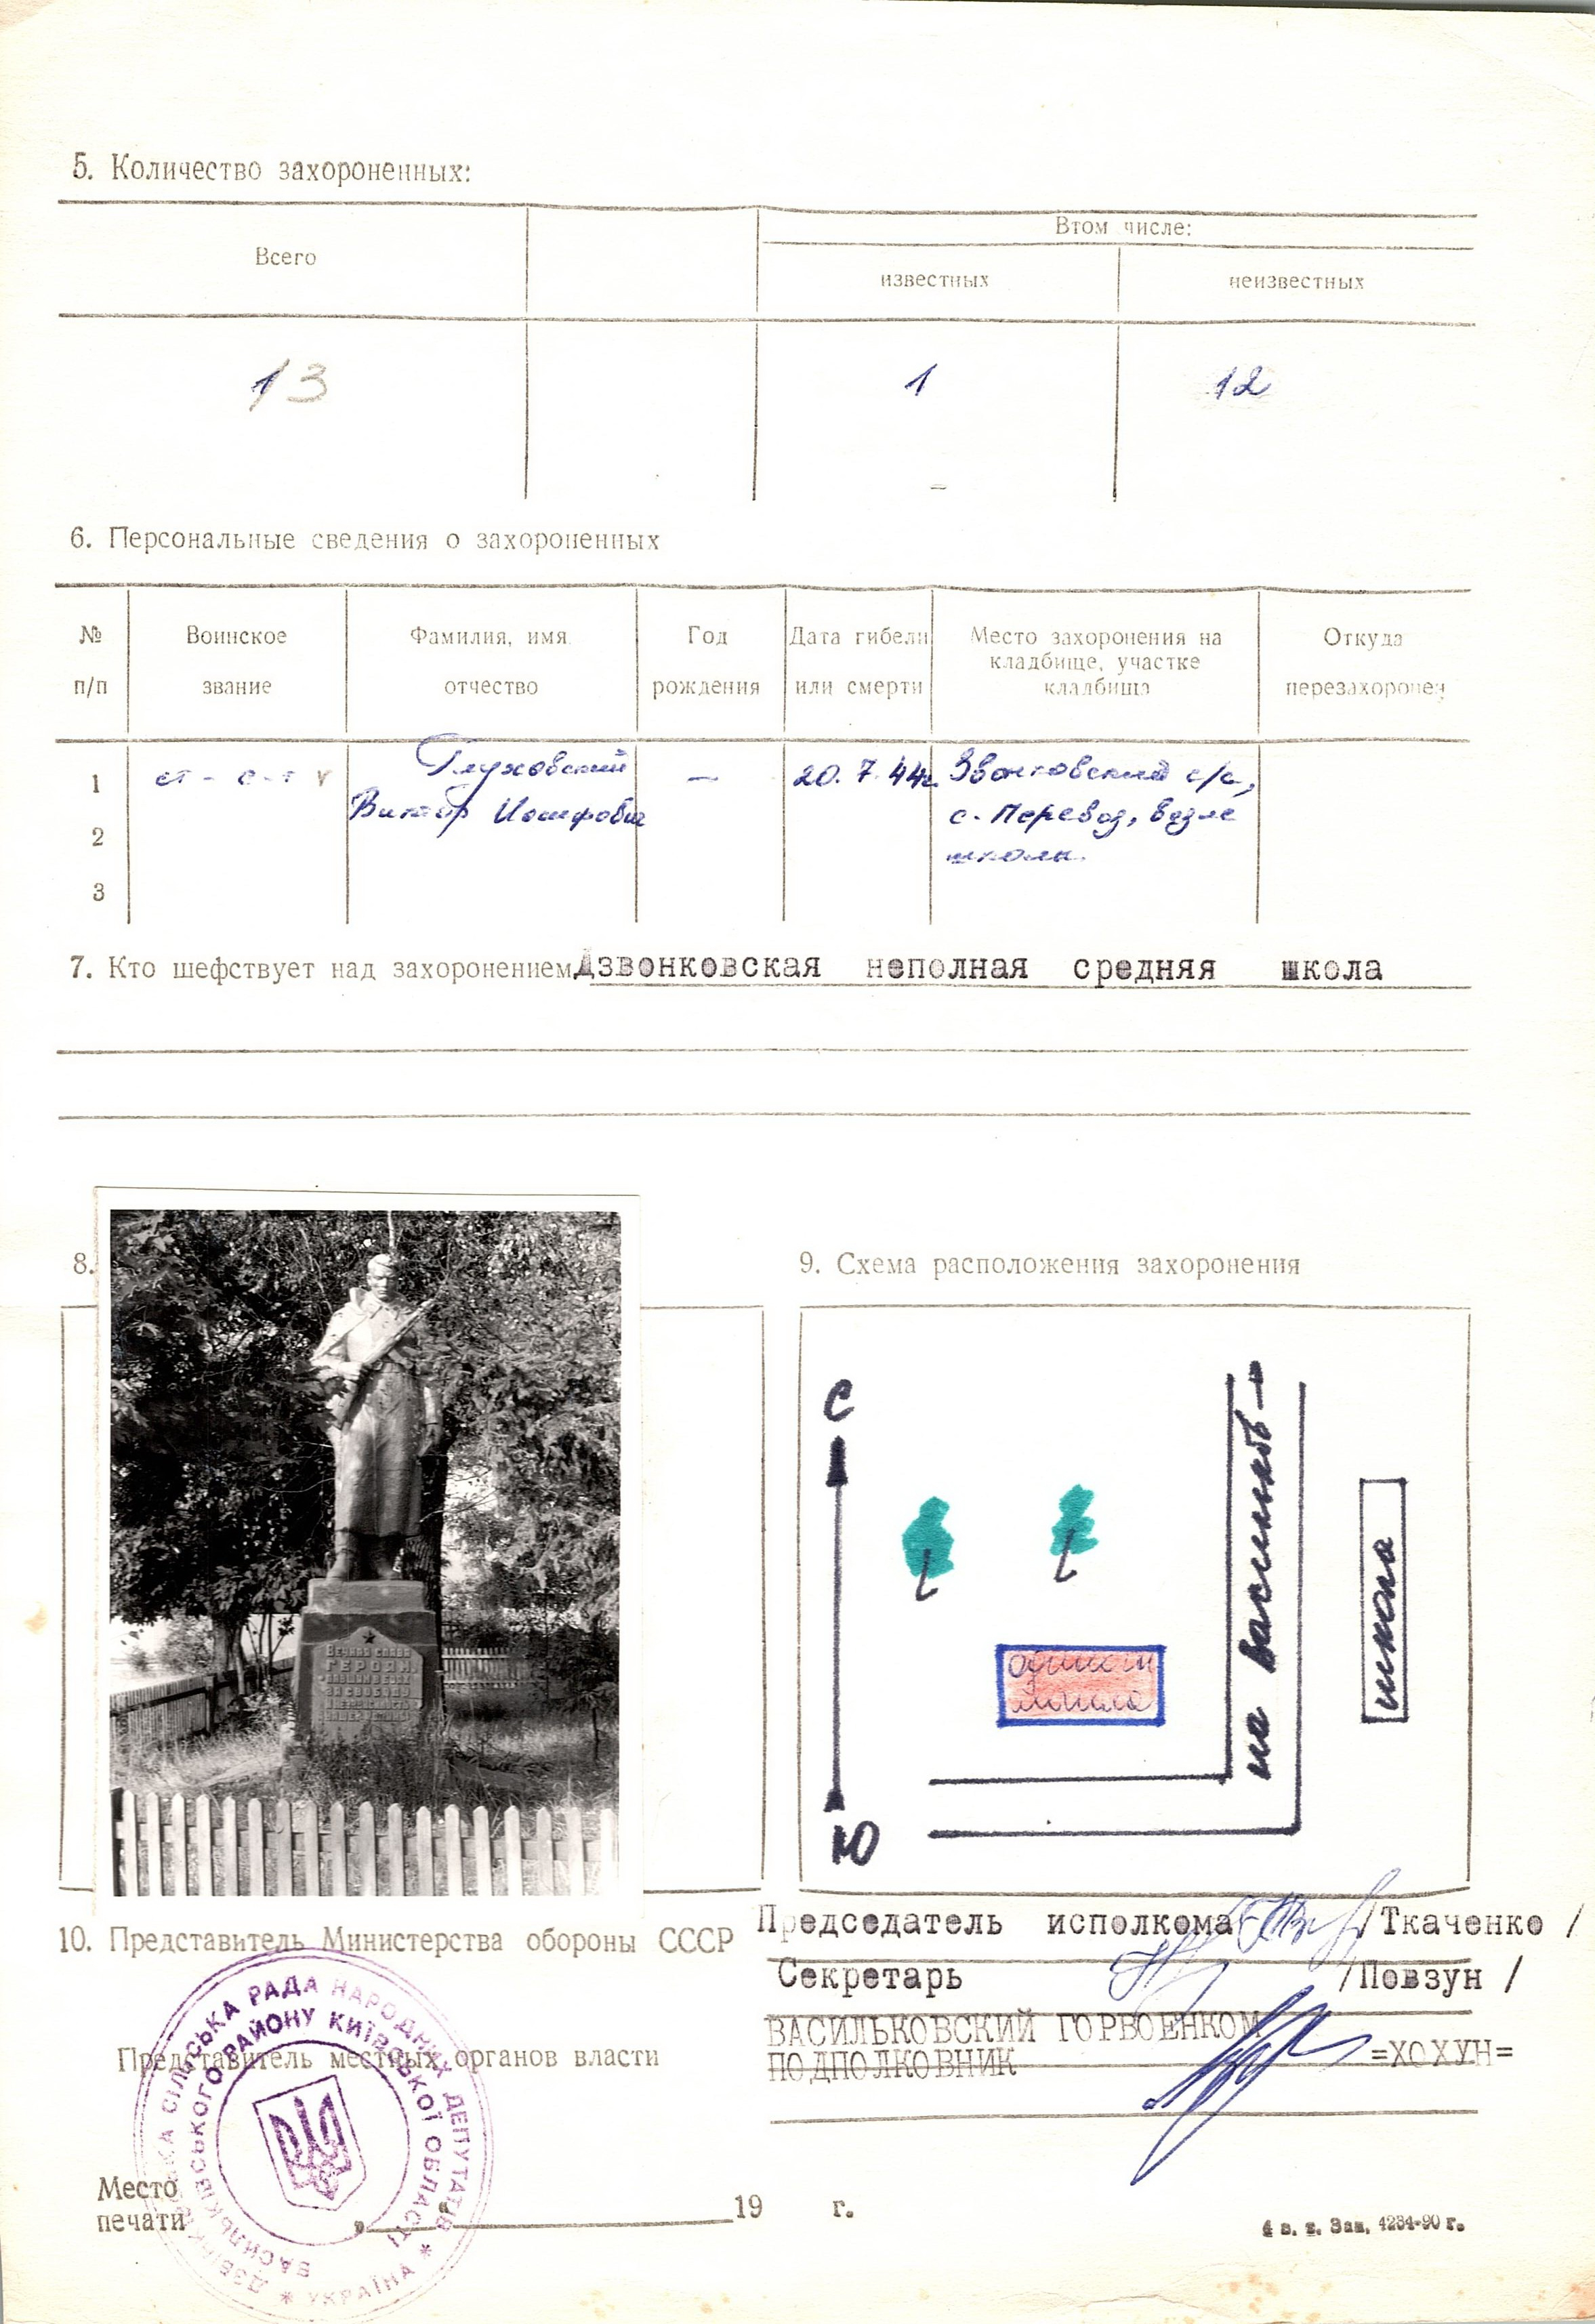 5. Количество захороненных:
Всего
Втом числе:
известных
неизвестных
13
1
12
6. Персональные сведения о захороненных
№ п/п
Воинское звание
Фамилия, имя отчество
Год рождения
Дата гибели или смерти
Место захоронения на кладбище, участке кладбища
Откуда перезахоронен
1
ст - с-т
Глуховский
Виктор Иосифович
—
20.7.44г.
Звонковский с/с,
с. Перевоз, возле
школы.
2
3
7. Кто шефствует над захоронением Дзвонковская неполная средняя школа
8.
ВЕЧНАЯ СЛАВА
ГЕРОЯМ,
9. Схема расположения захоронения
С
Ю
на Васильков
школа
могила
10. Представитель Министерства обороны СССР
Председатель исполкома /Ткаченко /
Секретарь /Повзун /
Представитель местных органов власти
ВАСИЛЬКОВСКИЙ ГОРВОЕНКОМ
ПОДПОЛКОВНИК =ХОХУН=
СІЛЬСЬКА РАДА НАРОДНИХ ДЕПУТАТІВ * УКРАЇНА *
ВАСИЛЬКІВСЬКОГО РАЙОНУ КИЇВСЬКОЇ ОБЛАСТІ
Место
печати
„ “ 19 г.
4 в. т. Зак. 4234-90 г.